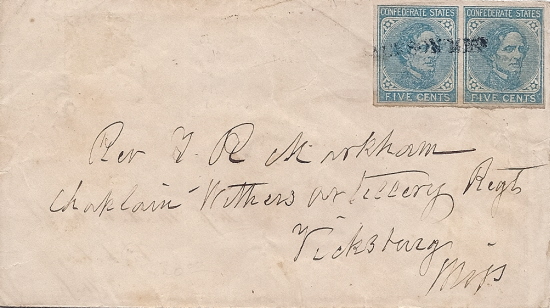 CONFEDERATE STATES CONFEDERATE STATES
JACKSON MISS
FIVE CENTS FIVE CENTS
Rev T. R Markham
Chaplain Withers artillery Regt
Vicksburg
Miss